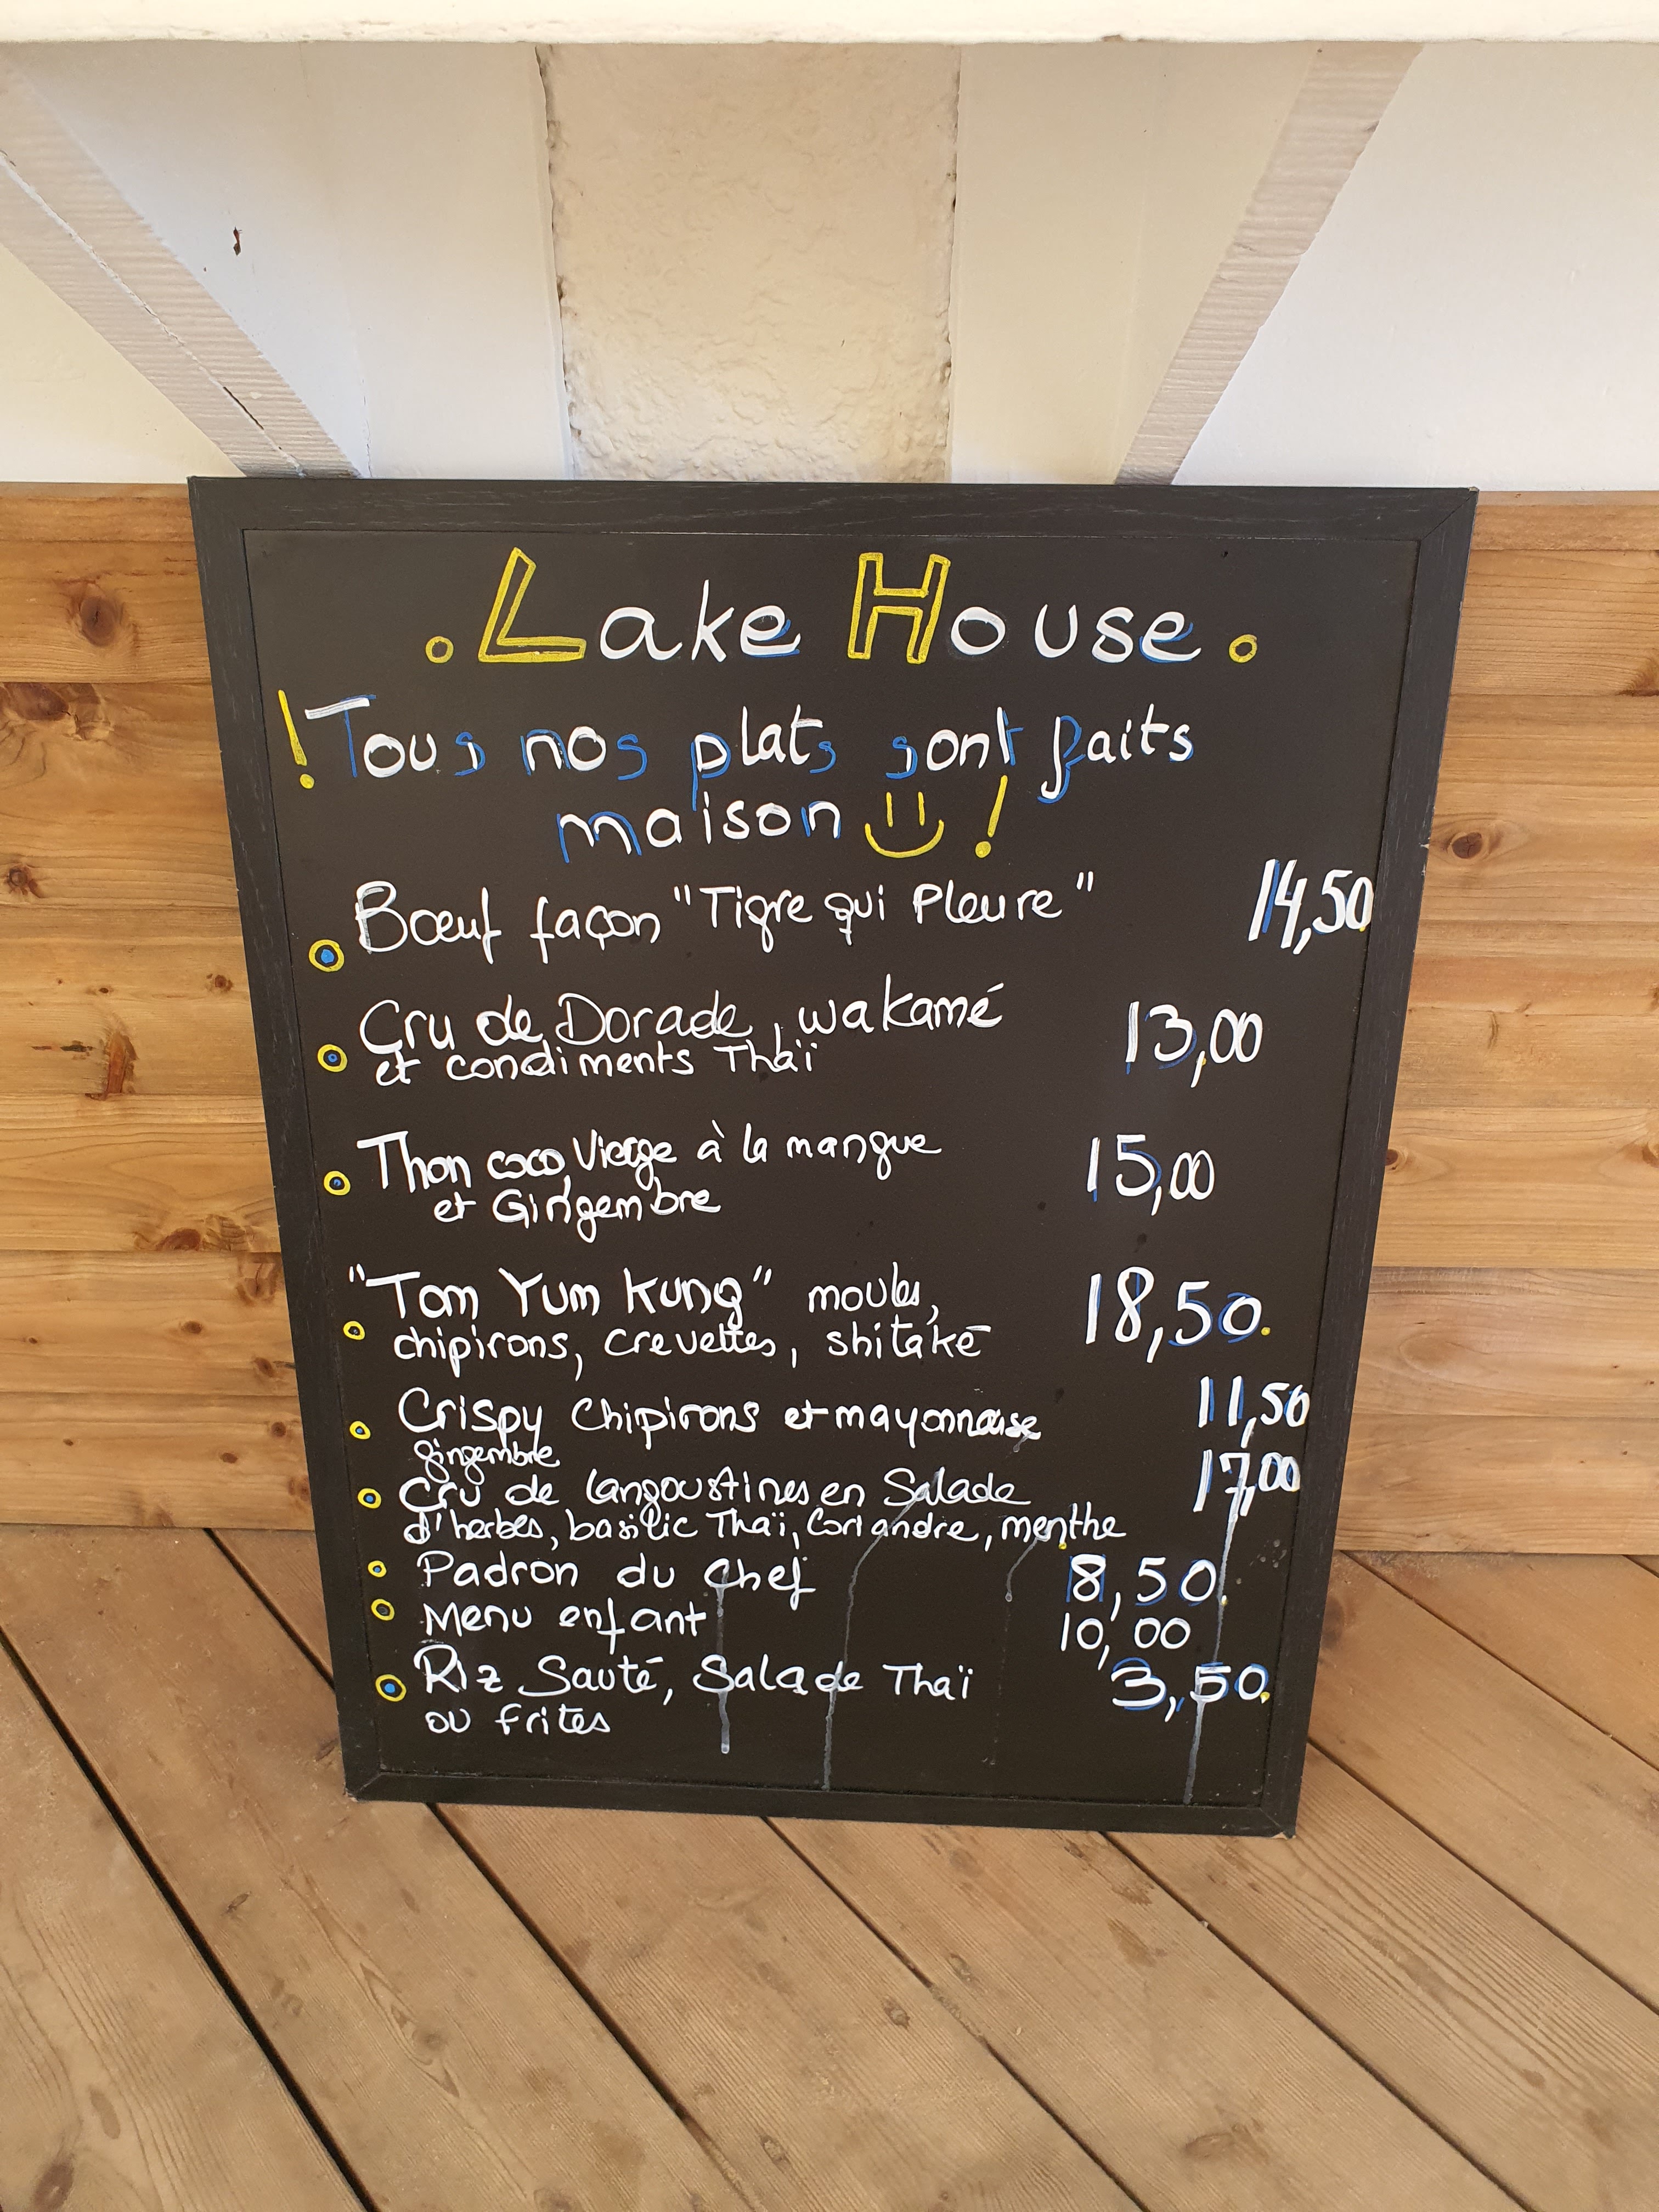 . Lake House .
! Tous nos plats sont faits
maison !
Bœuf façon "Tigre qui Pleure" 14,50
Cru de Dorade, wakamé 13,00
et condiments Thaï
Thon coco, Vierge à la mangue 15,00
et Gingembre
"Tom Yum Kung" moules, 18,50
chipirons, crevettes, shitaké
Crispy Chipirons et mayonnaise 11,50
gingembre
Cru de langoustines en Salade 17,00
d'herbes, basilic Thaï, Coriandre, menthe
Padron du chef 8,50
Menu enfant 10,00
Riz Sauté, Salade Thaï 3,50
ou frites